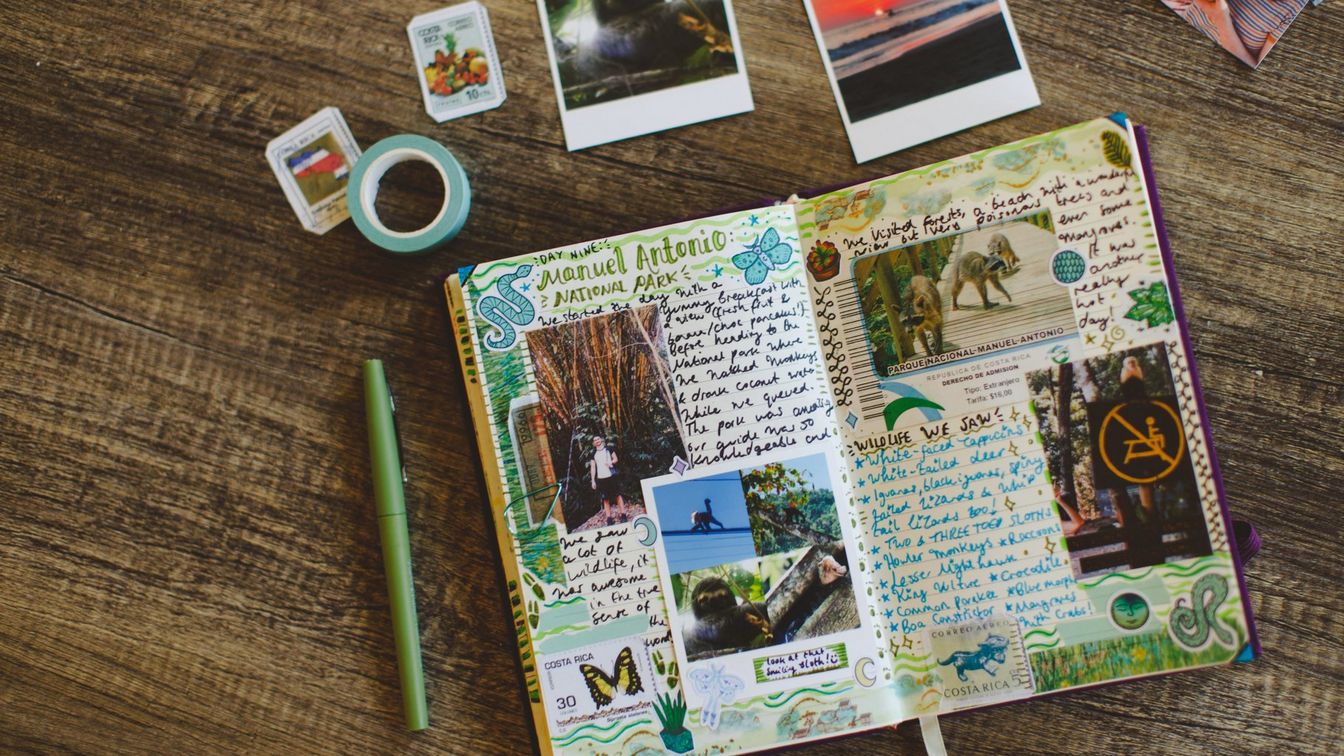 COSTA
RICA
10
DAY NINE:
Manuel Antonio
NATIONAL PARK
We started the day with a
yummy breakfast with
a view (fresh fruit &
/choc pancakes!)
before heading to the
National park where
we watched monkeys
& drank coconut water
while we queued.
The park was amazing
our guide was so
knowledgeable and
We saw
a lot of
wildlife, it
was awesome
in the true
sense of
the
word
COSTA RICA
30
look at that
smiling sloth!
We visited forests, a beach with a wonderful
view but very poisonous trees and
even some
mangroves.
It was
another
really
hot
day!
PARQUE NACIONAL MANUEL ANTONIO
REPUBLICA DE COSTA RICA
DERECHO DE ADMISION
Tipo: Extranjero
Tarifa: $16,00
WILDLIFE WE SAW
* White-faced Cappucins
* White-tailed deer
* Iguanas, black iguanas, spiny
tailed lizards & whip
tail lizards too!
* TWO & THREE TOED SLOTHS
* Howler Monkeys * Raccoons
* Lesser Nighthawk
* King Vulture * Crocodile
* Common Parakee * Blue morph
* Boa Constrictor * Mangroves
with Crabs!
CORREO AEREO
COSTA RICA